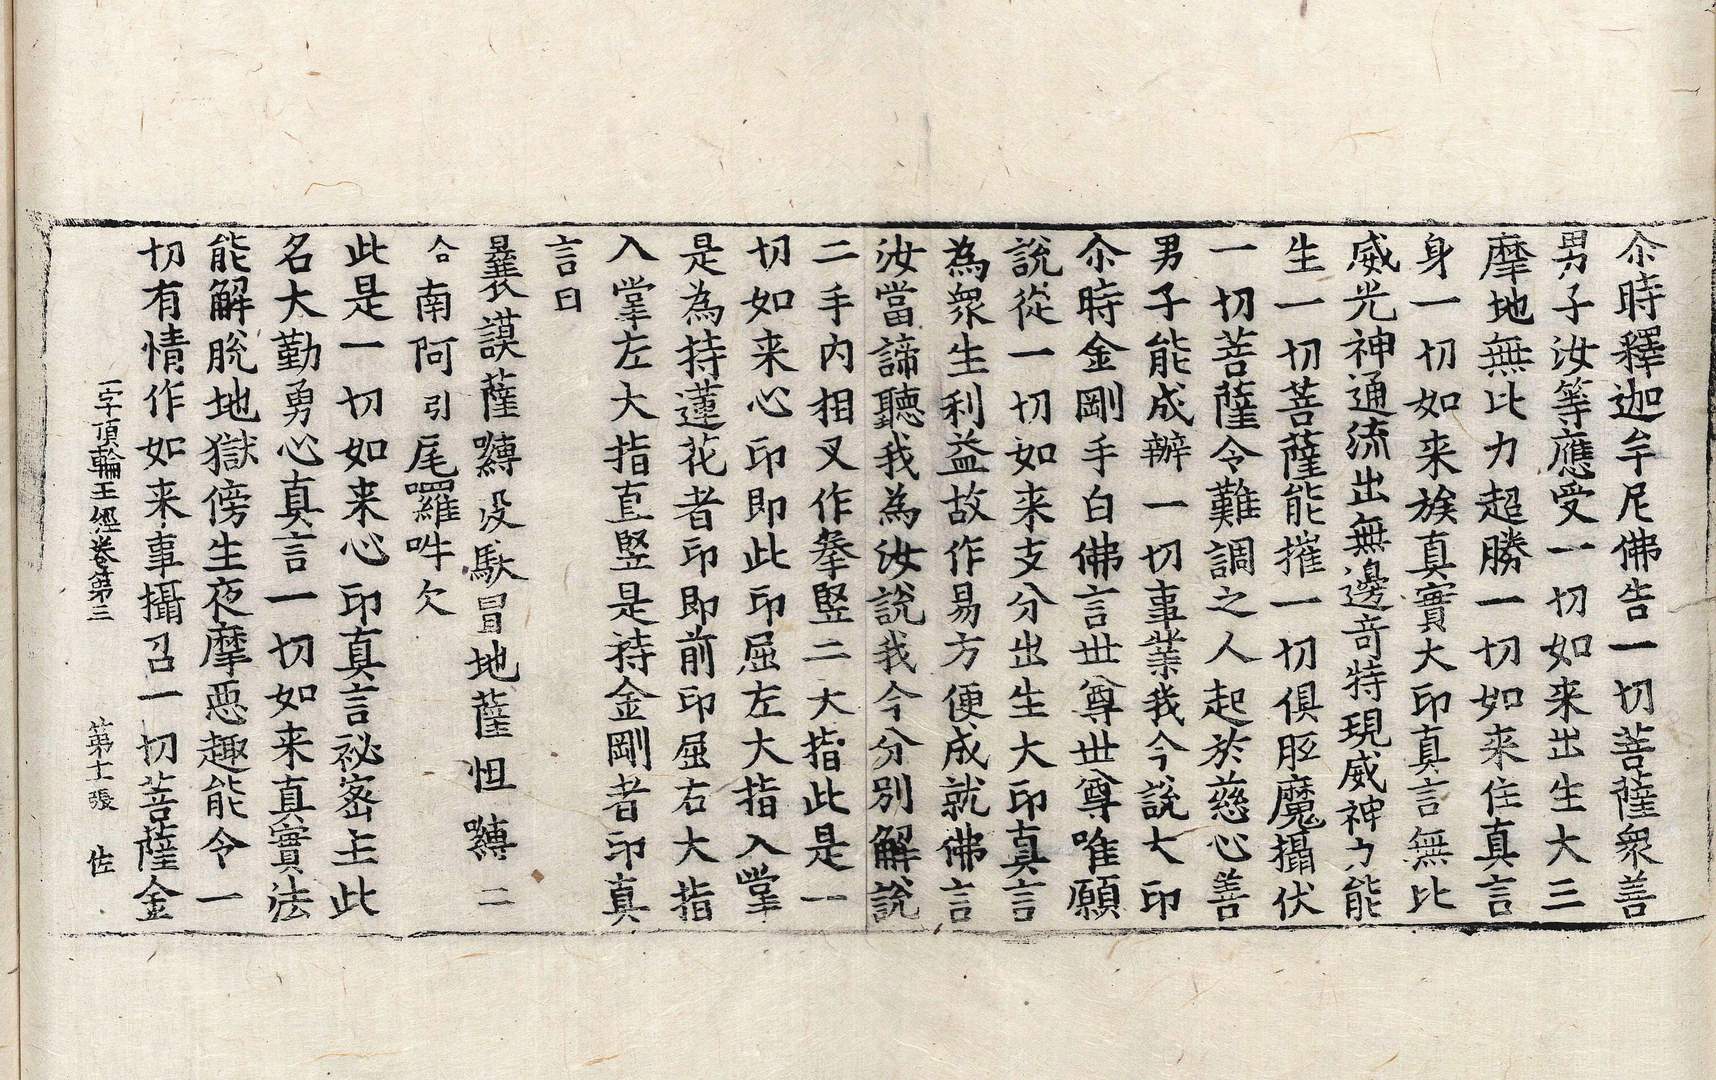 尒時釋迦牟尼佛告一切菩薩衆善
男子汝等應受一切如来出生大三
摩地無比力超勝一切如来住真言
身一切如来族真實大印真言無比
威光神通流出無邊竒特現威神力能
生一切菩薩能摧一切俱胝魔攝伏
一切菩薩令難調之人起於慈心善
男子能成辦一切事業我今說大印
尒時金剛手白佛言世尊世尊唯願
說從一切如来支分出生大印真言
為衆生利益故作易方便成就佛言
汝當諦聽我為汝說我今分別解說
二手内相叉作拳竪二大指此是一
切如来心印即此印屈左大指入掌
是為持蓮花者印即前印屈右大指
入掌左大指直竪是持金剛者印真
言曰
曩謨薩嚩没馱冒地薩怛嚩二
合南阿引尾囉吽欠
此是一切如来心印真言祕密主此
名大勤勇心真言一切如来真實法
能解脫地獄傍生夜摩惡趣能令一
切有情作如来事攝召一切菩薩金
一字頂輪王經卷第三 第十二張 佐